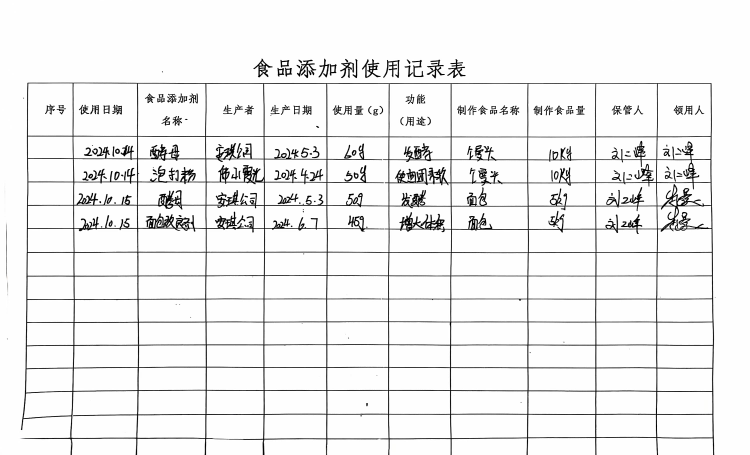 食品添加剂使用记录表
序号 使用日期 食品添加剂名称 生产者 生产日期 使用量（g） 功能（用途） 制作食品名称 制作食品量 保管人 领用人
2024.10.14 酵母 安琪公司 2024.5.3 60g 发酵 馒头 10kg 刘二峰 刘二峰
2024.10.14 泡打粉 2024.4.24 50g 馒头 10kg 刘二峰 刘二峰
2024.10.15 酵母 安琪公司 2024.5.3 50g 发酵 面包 5kg 刘二峰
2024.10.15 面包改良剂 安琪公司 2024.6.7 45g 增大体积 面包 5kg 刘二峰